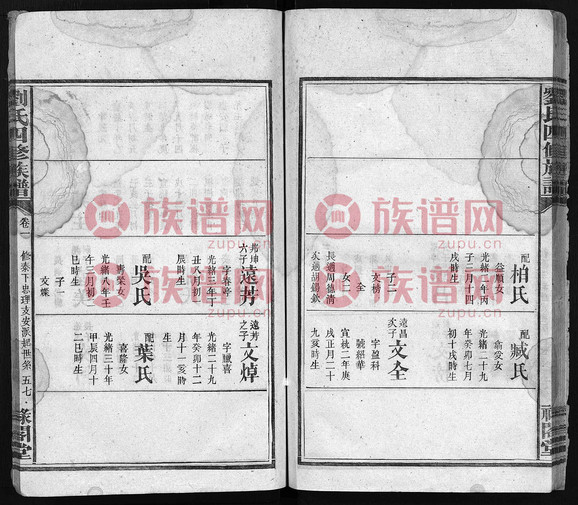 劉氏四修族譜
配柏氏
益順女
光緒八年丙
子二月十四
戌時生
子二
文榜
文全
女二
長適周德清
次適胡錫欽
配臧氏
俞愛女
光緒二十九
年癸卯七月
初十戌時生
遠昌次子文全
字盈科
號紹華
宣統二年庚
戌正月二十
九亥時生
祿閣堂
劉氏四修族譜
卷
共坤六子遠芳
字春亭
光緒三年丁
丑八月初
辰時生
配吳氏
壽榮女
光緒八年壬
午三月初
巳時生
子一
文煠
遠芳之子文焯
字臘喜
光緒二十九
年癸卯十二
月十二亥時
生
配葉氏
喜蘭女
光緒三十年
甲辰四月十
二巳時生
五七
祿閣堂
族谱网
zupu.cn
族谱网
zupu.cn
族谱网
zupu.cn
族谱网
zupu.cn